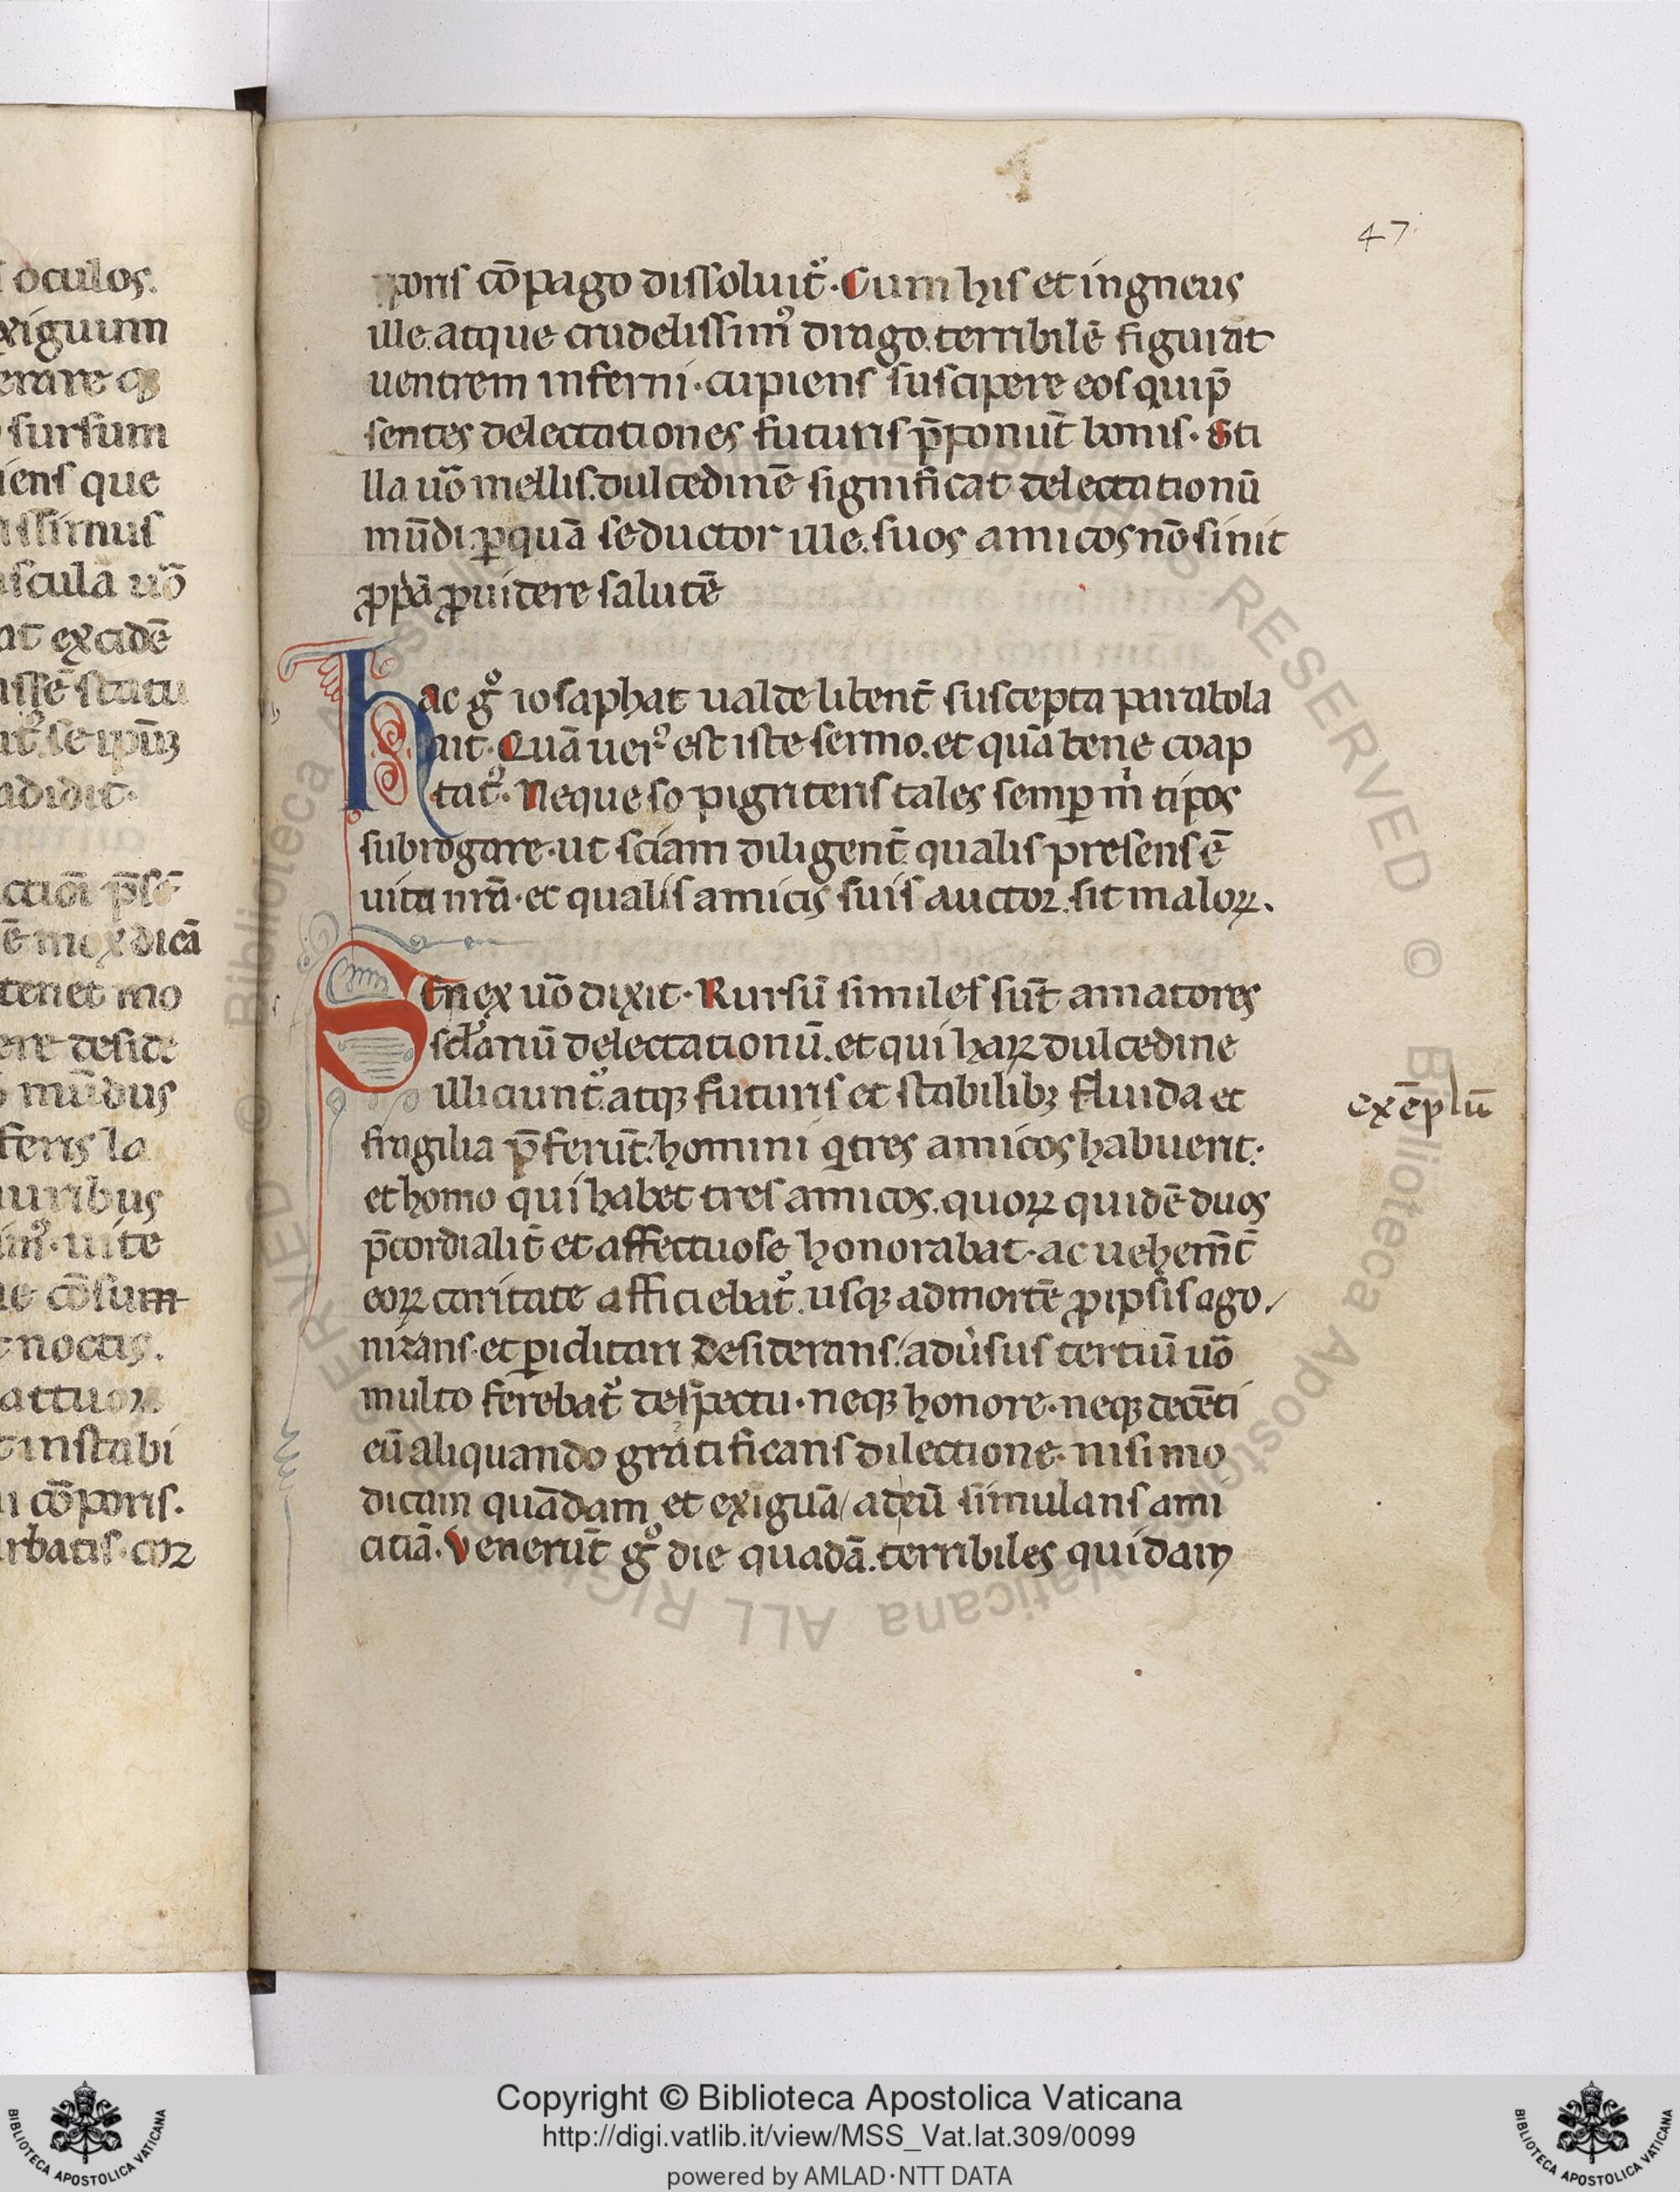 i oculos.
xiguum
erare q̄
sursum
iens que
issimus
scula uō
at excidē
issē statu
se ip̄m
adidit.
ctiōi p̄sē
ē mox dicā
tenet mo
ere deside
mūdus
feris la
auribus
uite
ue cōsum
noctis.
attuor
t instabi
i cōporis.
rbatis.
47
poris cōpago dissoluit᷑. Cum his et ingneus
ille. atque crudelissim᷒ drago. terribilē figurat
uentrem inferni. cupiens suscipere eos qui p̄
sentes delectationes futuris p̄ponūt bonis. Sti
lla uō mellis. dulcedinē significat delectationū
mūdi. ꝑ quā seductor ille. suos amicos nō sinit
ꝓpā ꝓuidere salutē
Hac gͦ iosaphat ualde libent̄ suscepta parabola
ait. Quā uer᷒ est iste sermo. et quā bene coap
tat᷑. Neque so pigriteris tales semꝑ m̍ tipos
subrogare. ut sciam diligent̄ qualis presens ē
uita nrā. et qualis amicis suis auctor. sit maloꝝ.
Senex uō dixit. Rursū similes sūt amatores
sclariū delectationū. et qui haꝝ dulcedine
illiciunt᷑. atqꝫ futuris et stabilibꝫ fluida et
fragilia p̄ferūt. homini q̍ tres amicos habuerit.
et homo qui habet tres amicos. quoꝝ quidē duos
p̄cordialit̄ et affectuose honorabat. ac uehemēt̄
eoꝝ caritate afficiebat᷑. usqꝫ ad mortē ꝓ ipsis ago/
nizans. et ꝑiclitari desiderans. adu̍sus tertiū uō
multo ferebat᷑ despectu. neqꝫ honore. neqꝫ decēti
eū aliquando gratificans dilectione. nisi mo
dicam quādam et exiguā/ ad eū simulans ami
citiā. Venerūt gͦ die quadā. terribiles quidam
exēplū
© Biblioteca Apostolica Vaticana ALL RIGHTS RESERVED
Copyright © Biblioteca Apostolica Vaticana
http://digi.vatlib.it/view/MSS_Vat.lat.309/0099
powered by AMLAD·NTT DATA
BIBLIOTECA APOSTOLICA VATICANA
BIBLIOTECA APOSTOLICA VATICANA